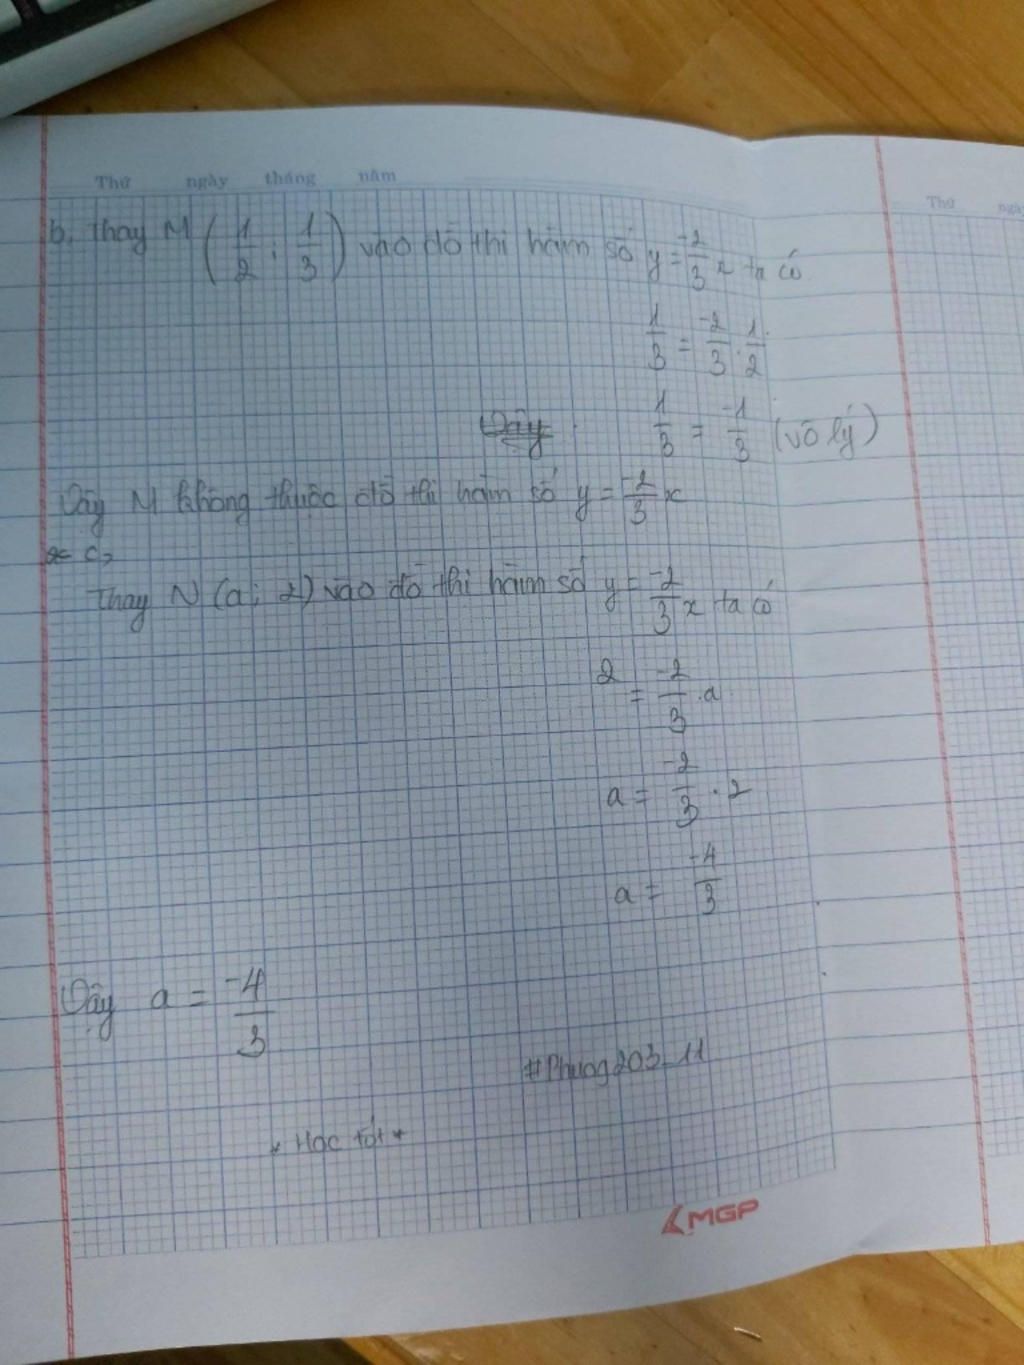 Thứ ngày tháng năm
Thứ ngày
b, Thay M (1/2 ; 1/3) vào đồ thị hàm số y = -2/3 x ta có
1/3 = -2/3 . 1/2
Vậy 1/3 = -1/3 (vô lý)
Vậy M không thuộc đồ thị hàm số y = -2/3 x
c,
Thay N (a; 2) vào đồ thị hàm số y = -2/3 x ta có
2 = -2/3 . a
a = -2/3 . 2
a = -4/3
Vậy a = -4/3
#Phuong203_11
* Học tốt *
MGP